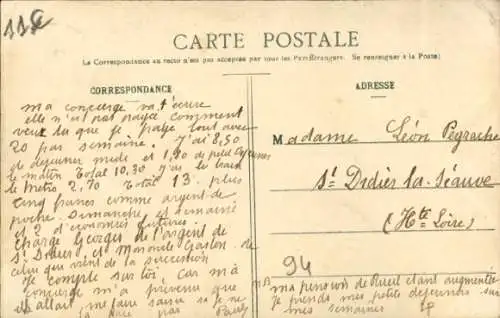 CARTE POSTALE
La Correspondance au recto n'est pas acceptée par tous les Pays Étrangers. Se renseigner à la Poste)
CORRESPONDANCE
ma concierge va t'écrire
elle n'est pas payée comment
veux tu que je paye tout avec
20 par semaine. J'ai 8,50
de dejeuner midi et 1,80 de petit dejeuner
le matin Total 10,30 J'ai le train
le metro 2,70 Total 13. plus
cinq francs comme argent de
poche. Dimanche et semaine
et 2 d'economies
charge Georges de l'argent de
St Didier, et Gaston de
celui qui vient de la succession
de compte sur toi, Car m'a
concierge m'a prévenu que
allait me faire saisir si je ne
la paie pas
ADRESSE
Madame Léon Peyrache
St Didier-la-Séauve
(Hte Loire)
94
NB ma pension de Rueil étant augmentée
Je prends mes petits dejeuners sur
mes semaines